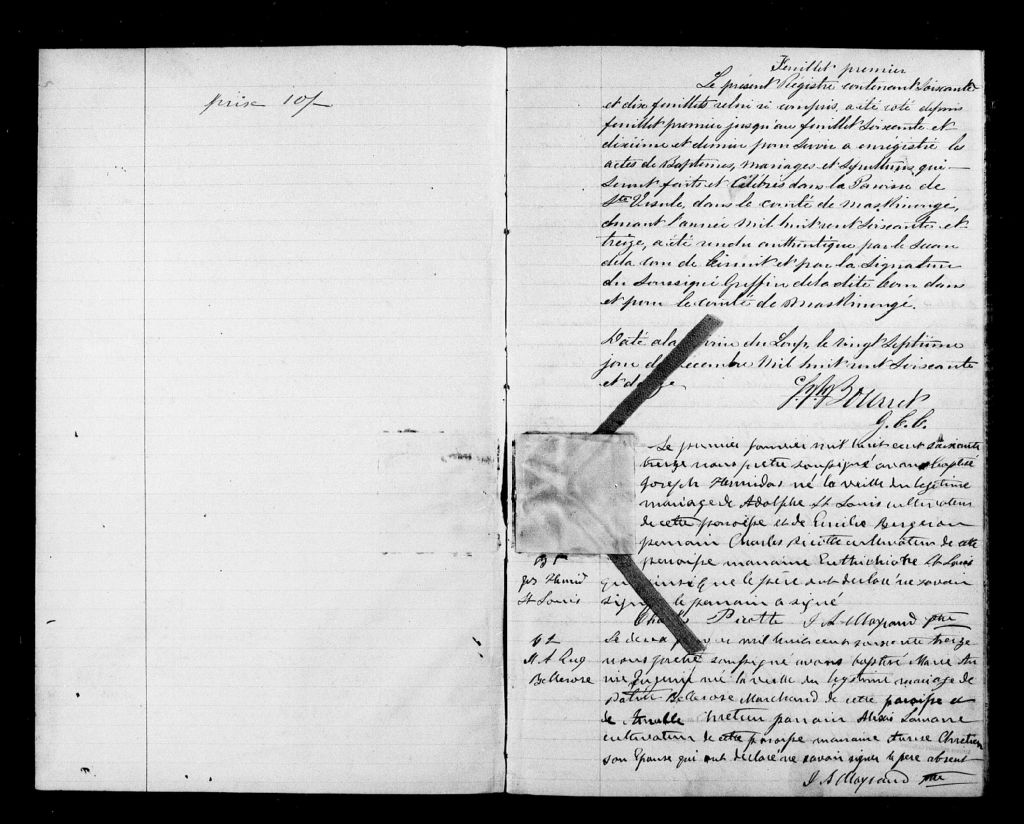 prix 10/-
Feuillet premier
Le présent Régistre contenant Soixante
et dix feuillets celui ci compris, a été coté depuis
feuillet premier jusqu'au feuillet Soixante et
dixième et dernier pour servir a enrégistré les
actes de Baptêmes, mariages et Sépultures qui
seront faits et Célébrés dans la Paroisse de
Ste Ursule, dans le comté de Maskinongé,
durant l'année mil huit cent Soixante et
treize, a été rendu authentique par le Sceau
de la Cour de Circuit et par la Signature
du Soussigné Greffier de la dite Cour dans
et pour le comté de Maskinongé.
Daté a la Rivière du Loup, le vingt Septième
jour de Décembre mil huit cent Soixante
et douze
G.C.C.
Le premier janvier mil huit cent soixante
treize nous prêtre soussigné avons baptisé
Joseph Hermidas né la veille du légitime
mariage de Adolphe St Louis cultivateur
de cette paroisse et de Emilie Bergeron
parrain Charles Picotte cultivateur de cette
paroisse marraine St Louis
qui ainsi que le père ont déclaré ne savoir
signer le parrain a signé
Charles Picotte J A Mayrand ptre
B 1
Jos Hermid
St Louis
Le deux janvier mil huit cent soixante treize
nous prêtre soussigné avons baptisé Marie An
nie Eugenie née la veille du légitime mariage de
Bellerose Marchand de cette paroisse et
de Chretien parrain Alexis Lamarre
cultivateur de cette paroisse marraine Chretien
son Epouse qui ont déclaré ne savoir signer le père absent
J A Mayrand ptre
B 2
M A Eug
Bellerose